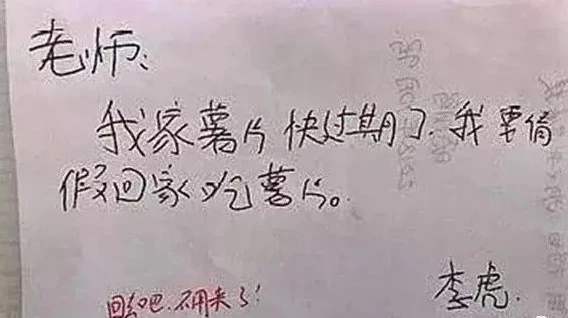 老师:
我家薯片快过期了.我要倩
假回家吃薯片。
李虎.
回去吧.不用来了!